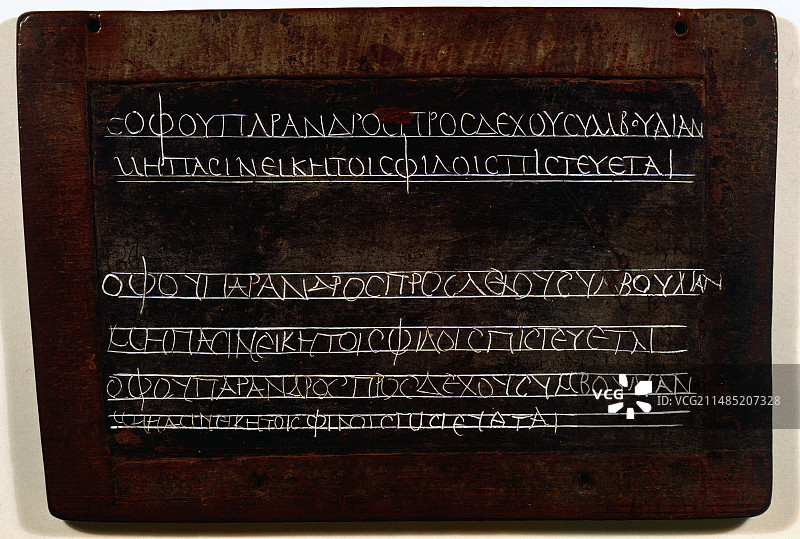 ϹΟΦΟΥΠΑΡΑΝΔΡΟϹΠΡΟϹΔΕΧΟΥϹΥΜΒΟΥΛΙΑΝ
ΜΗΠΑϹΙΝΕΙΚΗΤΟΙϹΦΙΛΟΙϹΠΙϹΤΕΥΕΤΑΙ
ΟΦΟΥΠΑΡΑΝΔΡΟϹΠΡΟϹΔΕΧΟΥϹΥΜΒΟΥΛΙΑΝ
ΜΗΠΑϹΙΝΕΙΚΗΤΟΙϹΦΙΛΟΙϹΠΙϹΤΕΥΕΤΑΙ
ΟΦΟΥΠΑΡΑΝΔΡΟϹΠΡΟϹΔΕΧΟΥϹΥΜΒΟΥΛΙΑΝ
ΜΗΠΑϹΙΝΕΙΚΗΤΟΙϹΦΙΛΟΙϹΠΙϹΤΕΥΕΤΑΙ
VCG
ID: VCG211485207328